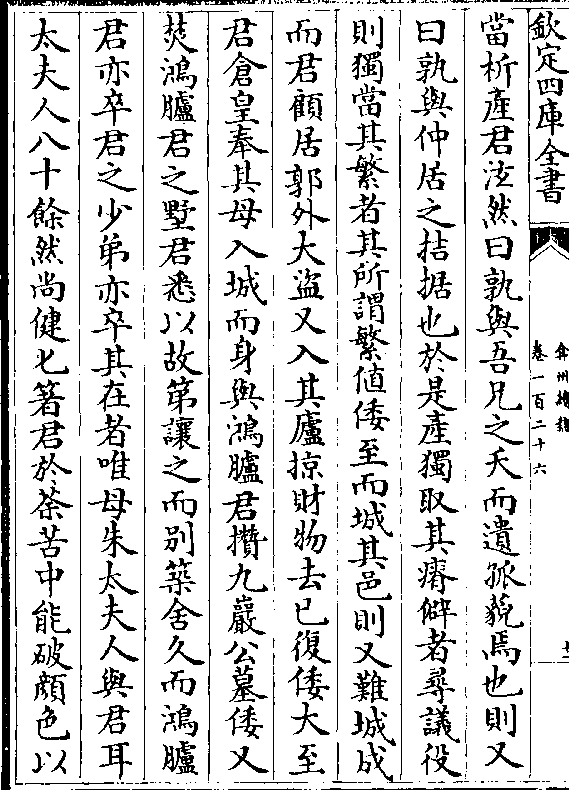 欽定四庫全書
弇州續稿
卷一百二十六
當析產君泫然曰孰與吾兄之夭而遺孤藐焉也則又
曰孰與仲居之拮据也於是產獨取其瘠僻者尋議役
則獨當其繁者其所謂繁値倭至而城其邑則又難城成
而君顧居郭外大盜又入其廬掠財物去已復倭大至
君倉皇奉其母入城而身與鴻臚君攢九巖公墓倭又
焚鴻臚君之墅君悉以故第讓之而別築舍久而鴻臚
君亦卒君之少弟亦卒其在者唯母朱太夫人與君耳
太夫人八十餘然尚健匕箸君於荼苦中能破顔色以